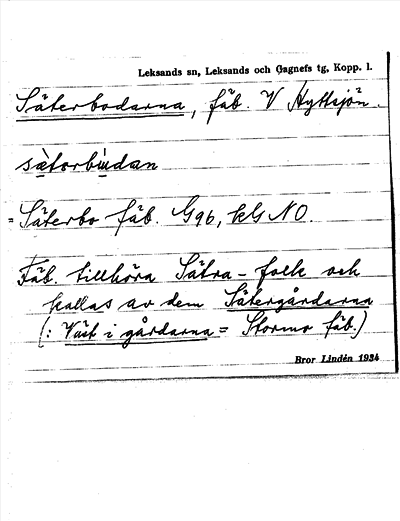 Leksands sn, Leksands och Gagnefs tg, Kopp. l.
Säterbodarna, fäb. V Hyttsjön.
sètorbùdan
= Säterbo fäb. G96, kG NO.
Fäb. tillhöra Sätra-folk och
kallas av dem Sätergårdarna
(: Väst i gårdarna = Stormo fäb.)
Bror Lindén 1934